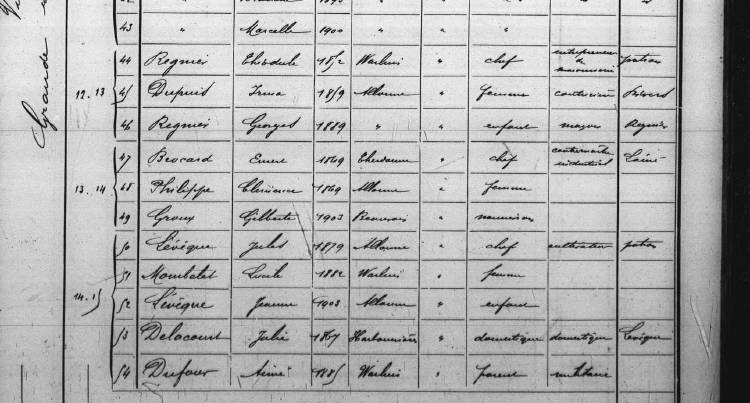 Grande
43 " Marcelle 1900 " " "
44 Regnier Théodule 1852 Warluis " chef entrepreneur de maçonnerie patron
12. 13 45 Dupuis Irma 1859 Allonne " femme couturière
46 Regnier Georges 1889 " " enfant maçon Regnier
47 Brocard Ernest 1869 " chef contremaître industriel Lainé
13. 14 48 Philippe Clémence 1869 Allonne " femme
49 Groux Gilberte 1903 Beauvais " nourrisson
50 Lévêque Jules 1879 Allonne " chef cultivateur patron
51 Lucile 1882 Warluis " femme
14. 15 52 Lévêque Jeanne 1903 Allonne " enfant
53 Delacourt Julie 1867 Harbonnières " domestique domestique Lévêque
54 Dufour Aimé 1885 Warluis " parent militaire